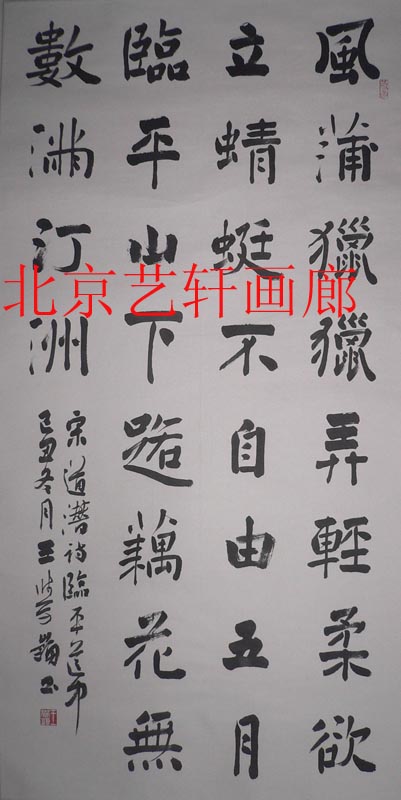 風蒲獵獵弄輕柔欲
立蜻蜓不自由五月
臨平山下路藕花無
數滿汀洲
宋道潛詩臨平道中
己丑冬月王
北京艺轩画廊